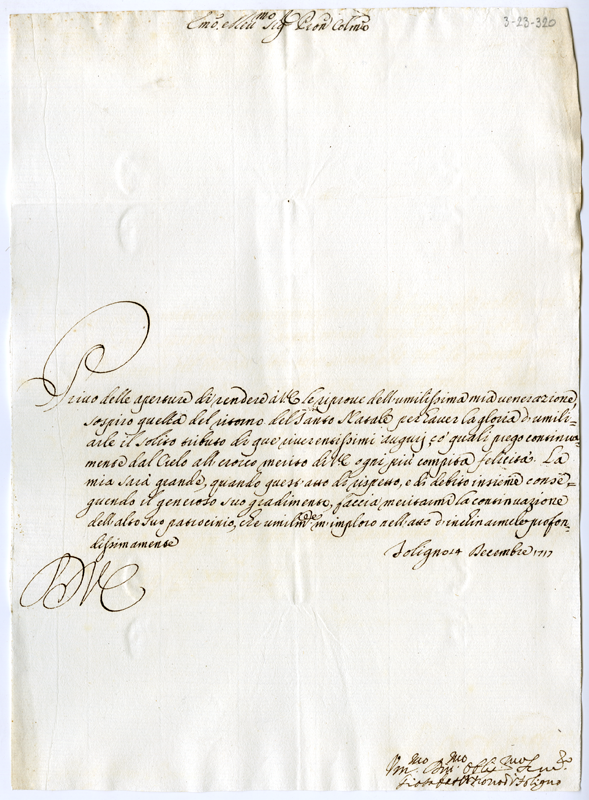 Em̃o, e Reu.mo Sig.r Pron Colmo
3-23-320
Priuo delle aperture di rendere à VE le riproue dell'umilissima mia uenerazione,
sospiro quella del ritorno del Santo Natale per hauer la gloria d'umili-
arle il solito tributo di que' riuerentissimi augurij, co' quali prego continua-
mente dal Cielo all'eroico merito di VE ogni più compita felicità. La
mia sarà grande, quando quest'atto di rispetto, e di debito insieme conse-
guendo il generoso suo gradimento, faccia meritarmi la continuazione
dell'alto suo patrocinio, che umilmte m'imploro nell'atto d'inchinarmele profon-
dissimamente
Foligno 14 Decembre 1717
DVE
Vm.mo Diu.mo Obli.mo Seru.
di Foligno